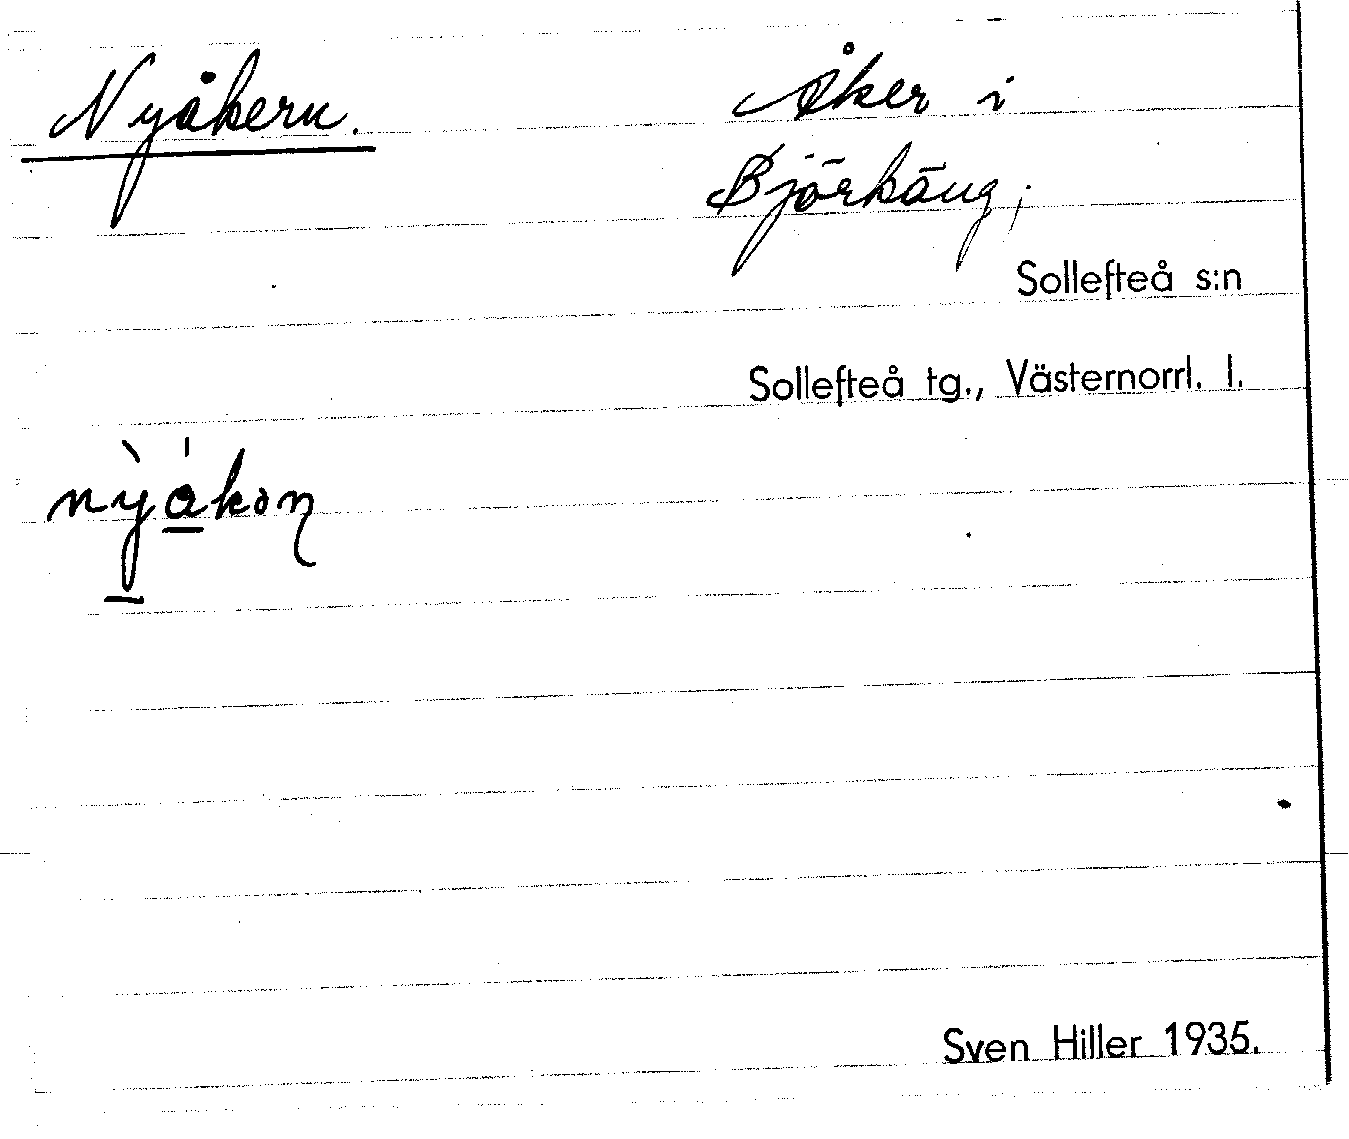 Nyåkern. Åker i
Björkäng;
Sollefteå s:n
Sollefteå tg., Västernorrl. l.
Sven Hiller 1935.